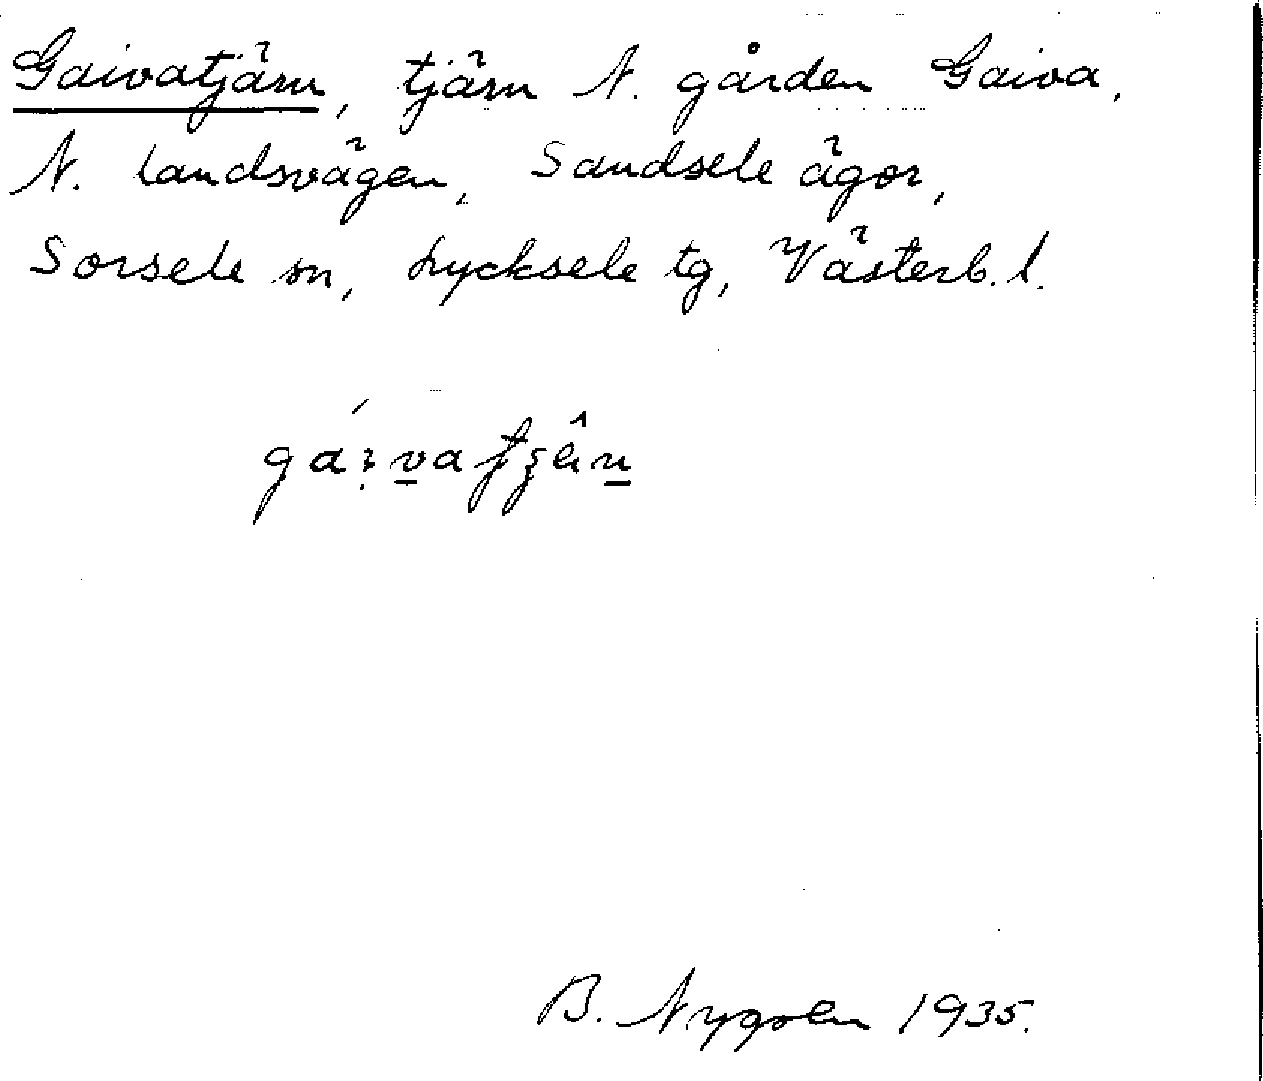 Gaivatjärn, tjärn N. gården Gaiva,
N. landsvägen, Sandsele ägor,
Sorsele sn, Lycksele tg, Västerb. l.
B. Nygren 1935.